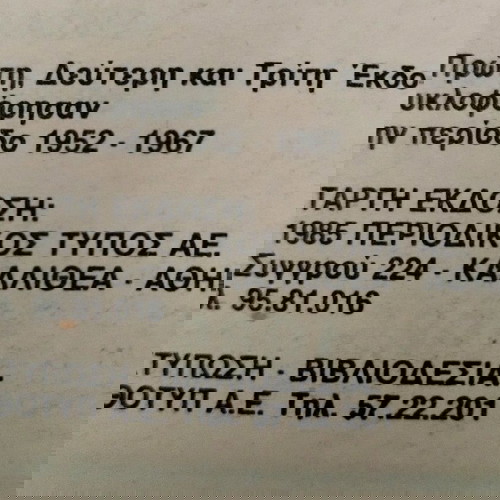 Πρώτη, Δεύτερη και Τρίτη Έκδο
υκλοφόρησαν
ην περίοδο 1952 - 1967
ΤΑΡΤΗ ΕΚΔΟΣΗ:
1985 ΠΕΡΙΟΔΙΚΟΣ ΤΥΠΟΣ ΑΕ.
Συγγρού 224 - ΚΑΛΛΙΘΕΑ - ΑΘΗ
λ. 95.81.016
ΤΥΠΩΣΗ - ΒΙΒΛΙΟΔΕΣΙΑ
ΘΟΤΥΠ Α.Ε. Τηλ. 57.22.201